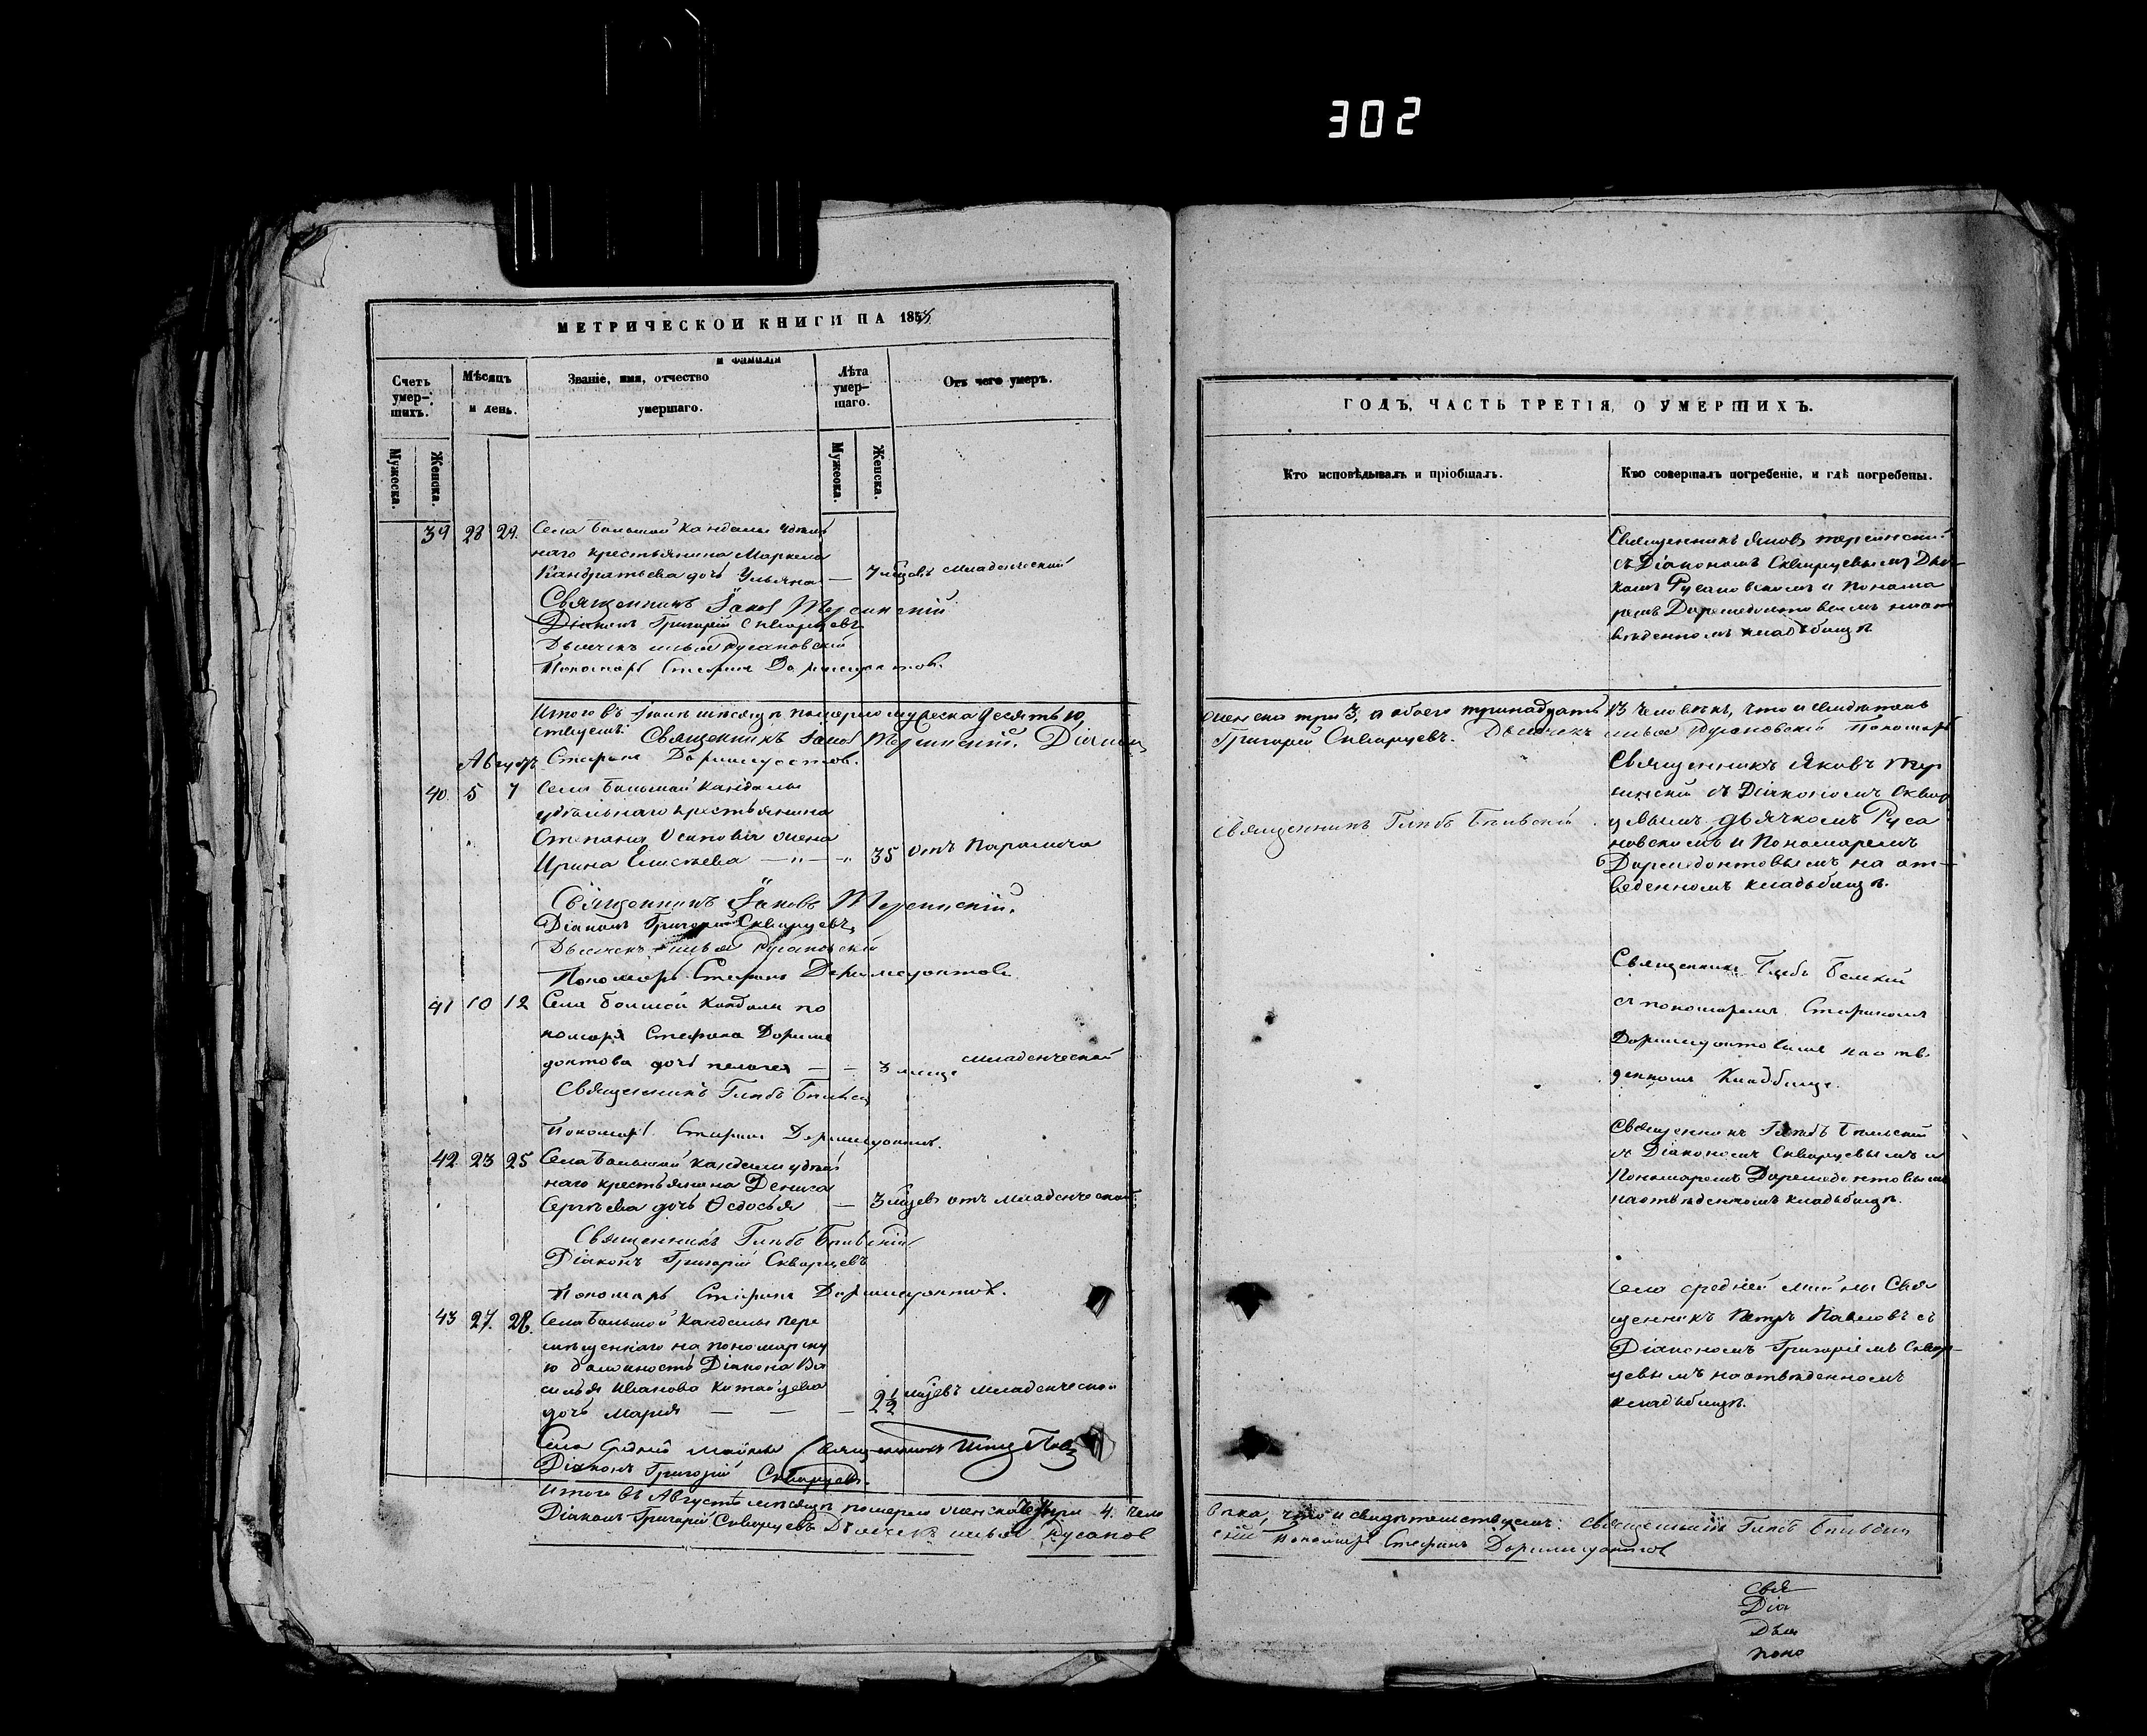 302
МЕТРИЧЕСКОЙ КНИГИ НА 185
Счетъ умер-шихъ.
Мѣсяцъ и день.
Званіе, имя, отчество и фамилія умершаго.
Лѣта умер-шаго.
Отъ чего умеръ.
Мужеска.
Женска.
Мужеска.
Женска.
39 28 29. Села Большой Кандалы удѣль
наго крестьянина Маркела
Кандратьева дочь Ульяна — 7 мѣцовъ младенческой
Священникъ Іаковъ Терсинскій
Діаконъ Григорій Скворцевъ
Дьячекъ Илья Русановскій
Пономарь Стефанъ Доримедонтовъ.
Итого въ Іюлѣ мѣсяцѣ померло мужеска десять 10,
ствуемъ: Священникъ Іаковъ Терсинскій. Діаконъ
Августъ Стефанъ Доримедонтовъ.
40. 5 7 Села Большой Кандалы
удѣльнаго крестьянина
Степана Осипова жена
Ирина Елисѣева — „ — „ 35 отъ Паралича
Священникъ Іаковъ Терсинскій.
Діаконъ Григорій Скворцевъ
Дьячекъ Илья Русановскій
Пономарь Стефанъ Доримедонтовъ
41 10 12 Села Большой Кандалы по
номаря Стефана Дориме
донтова дочь Пелагея — — 3 младенческой
Священникъ Глѣбъ Бѣльскій
Пономарь Стефанъ Доримедонтовъ.
42 23 25 Села Большой Кандалы удѣль
наго крестьянина Дениса
Сергѣева дочь Ѳедосья — 3 мѣцевъ отъ младенческой
Священникъ Глѣбъ Бѣльскій
Діаконъ Григорій Скворцевъ
Пономарь Стефанъ Доримедонтовъ.
43 27. 28. Села Большой Кандалы пере
мѣщеннаго на пономарску
ю должность Діакона Ва
силья Иванова Китайцева
дочь Марія — — — 2½ мѣцевъ младенческой
Села Средней Майны Священникъ Петръ
Діаконъ Григорій Скворцевъ.
Итого въ Августѣ мѣсяцѣ померло женска четыре 4. чело
Діаконъ Григорій Скворцевъ Дьячекъ Илья Русанов
ГОДЪ, ЧАСТЬ ТРЕТІЯ, О УМЕРШИХЪ.
Кто исповѣдывалъ и пріобщалъ.
Кто совершалъ погребеніе, и гдѣ погребены.
Священникъ Яковъ Терсинскій
съ Діакономъ Скворцевымъ Дья-
комъ Русановскимъ и Понама
ремъ Доремедонтовымъ наот
веденномъ кладбищѣ
женска три 3, а обоего тринадцать 13 человѣкъ, что и свидѣтель
Григорій Скворцевъ. Дьячекъ Илья Русановскій Пономарь
Священникъ Глѣбъ Бѣльскій
Священникъ Яковъ Тер
синскій съ Діакономъ Сквор
цевымъ, дьячкомъ Руса
новскимъ и Пономаремъ
Доремедонтовымъ на от-
веденномъ кладьбищѣ.
Священникъ Глѣбъ Бѣлскій
съ пономаремъ Стефаномъ
Доримедонтовымъ на отве
денномъ Кладбище.
Священникъ Глѣбъ Бѣльскій
съ Діакономъ Скворцевымъ и
Пономаремъ Доремедонтовымъ
наотведенномъ кладьбищѣ.
Села средней майны Свя
щенникъ Петръ Павловъ съ
Діакономъ Григоріемъ Сквор-
цевымъ наотведенномъ
кладьбищѣ.
вѣка, что и свидѣтельствуемъ: Священникъ Глѣбъ Бѣльскій
скій Пономарь Стефанъ Доримедонтовъ
Свя
Діа
Дья
поно